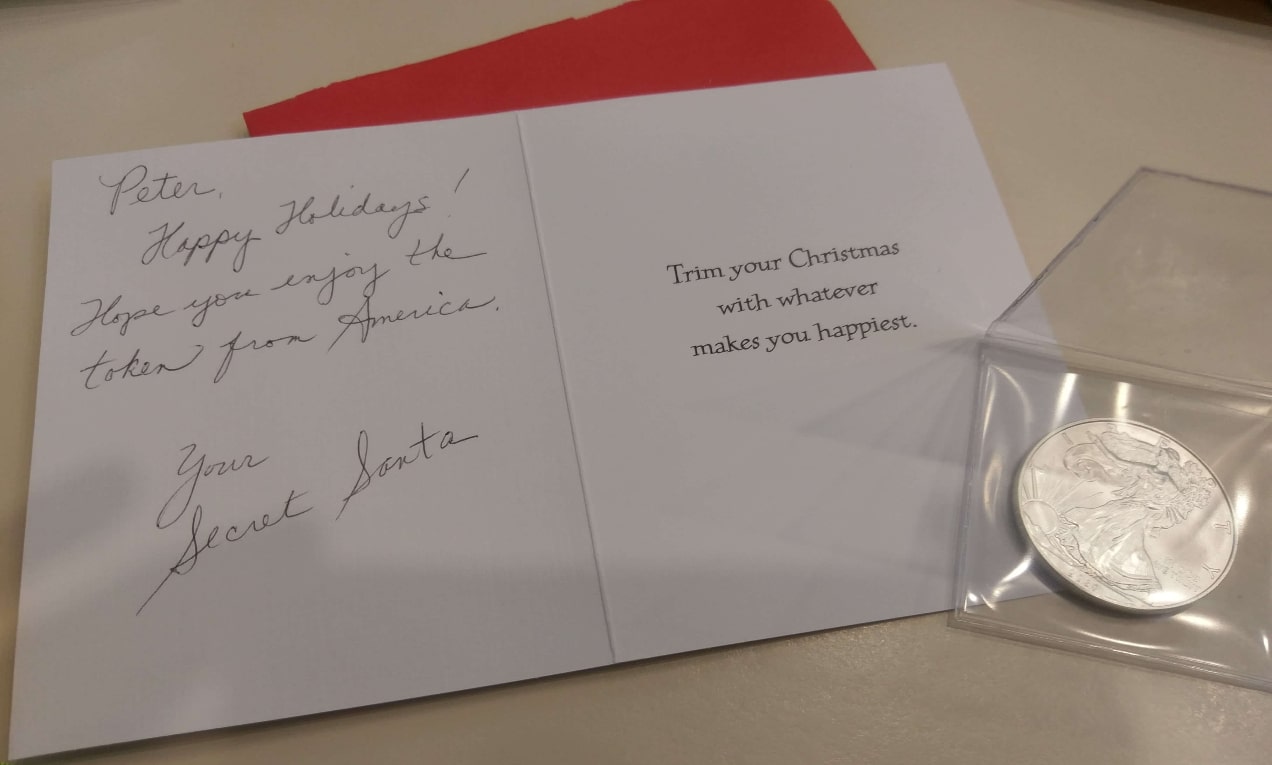 Peter,
Happy Holidays!
Hope you enjoy the
token from America.
Your
Secret Santa
Trim your Christmas
with whatever
makes you happiest.
T Y